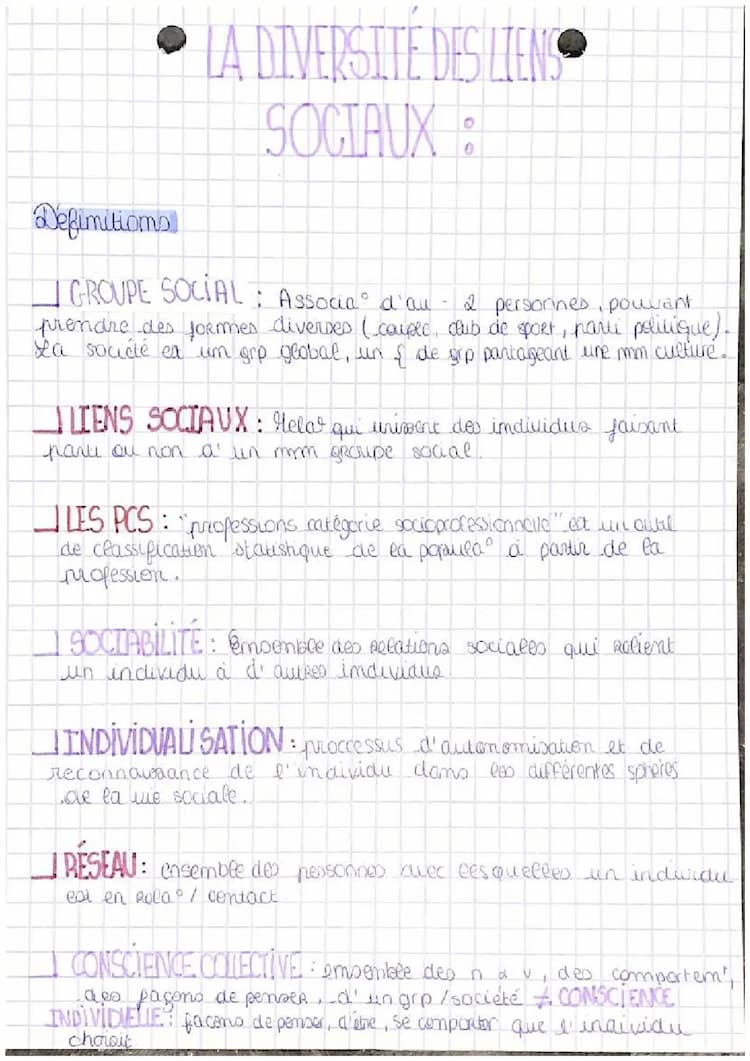 LA DIVERSITÉ DES LIENS
SOCIAUX :
Définitions
GROUPE SOCIAL : Associa° d'au - 2 personnes, pouvant
prendre des formes diverses (couple, club de sport, parti politique).
La société est un grp global, un { de grp partageant une mm culture.
LIENS SOCIAUX : Rela° qui unissent des individus faisant
parti ou non à un mm groupe social.
LES PCS : "professions catégorie socioprofessionnelle" est un outil
de classification statistique de la popula° à partir de la
profession.
SOCIABILITÉ : Ensemble des relations sociales qui relient
un individu à d'autres individus.
INDIVIDUALISATION : proccessus d'autonomisation et de
reconnaissance de l'individu dans les différentes sphères
de la vie sociale.
RÉSEAU : ensemble des personnes avec lesquelles un individu
est en rela° / contact
CONSCIENCE COLLECTIVE : ensemble des n & v, des comportemt,
des façons de penser, d'un grp / société ≠ CONSCIENCE
INDIVIDIELLE : façons de penser, d'être, se comporter que l'individu
choisit